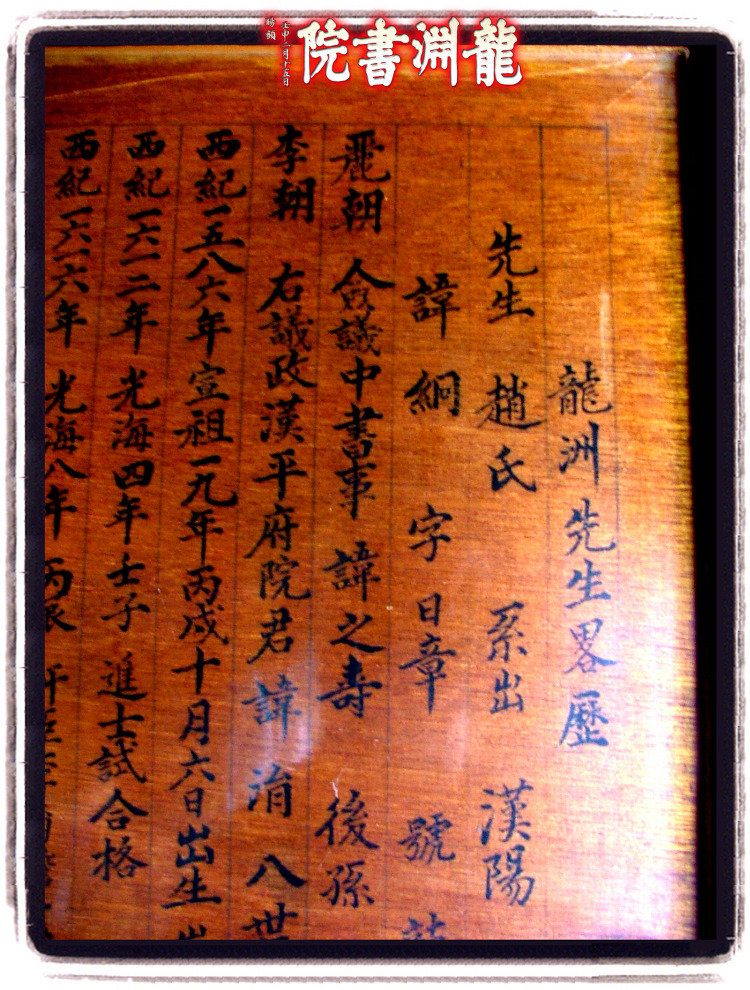 龍淵書院
壬申二月十五日
賜額
龍洲先生畧歷
先生 趙氏 系出 漢陽
諱 絅 字 日章 號
麗朝 僉議中書事 諱 之壽 後孫
李朝 右議政漢平府院君 諱 涓 八世
西紀一五八六年宣祖一九年丙戌十月六日出生
西紀一六一二年 光海四年壬子 進士試合格
西紀一六一六年 光海八年 丙辰